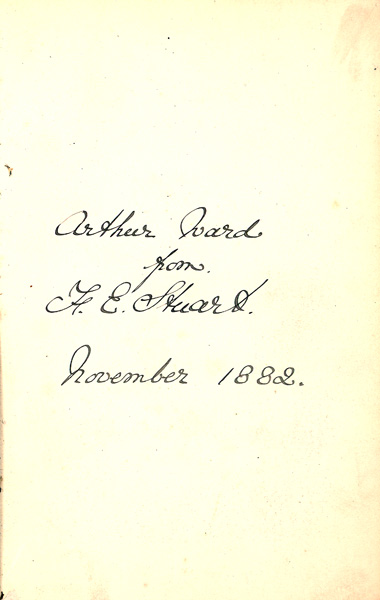 Arthur Ward
from.
H. E. Stuart.
November 1882.